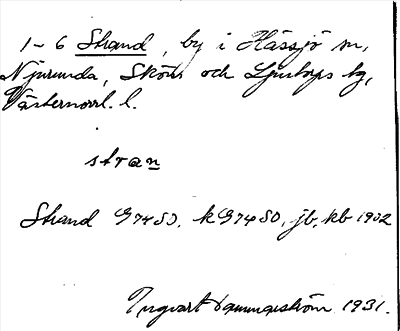 1-6 Strand, by i Hässjö sn,
Njurunda, Sköns och Ljustorps tg,
Västernorrl. l.
stran
Strand G7450. k G7450, jb, kb 1902
Ingvart 1931.